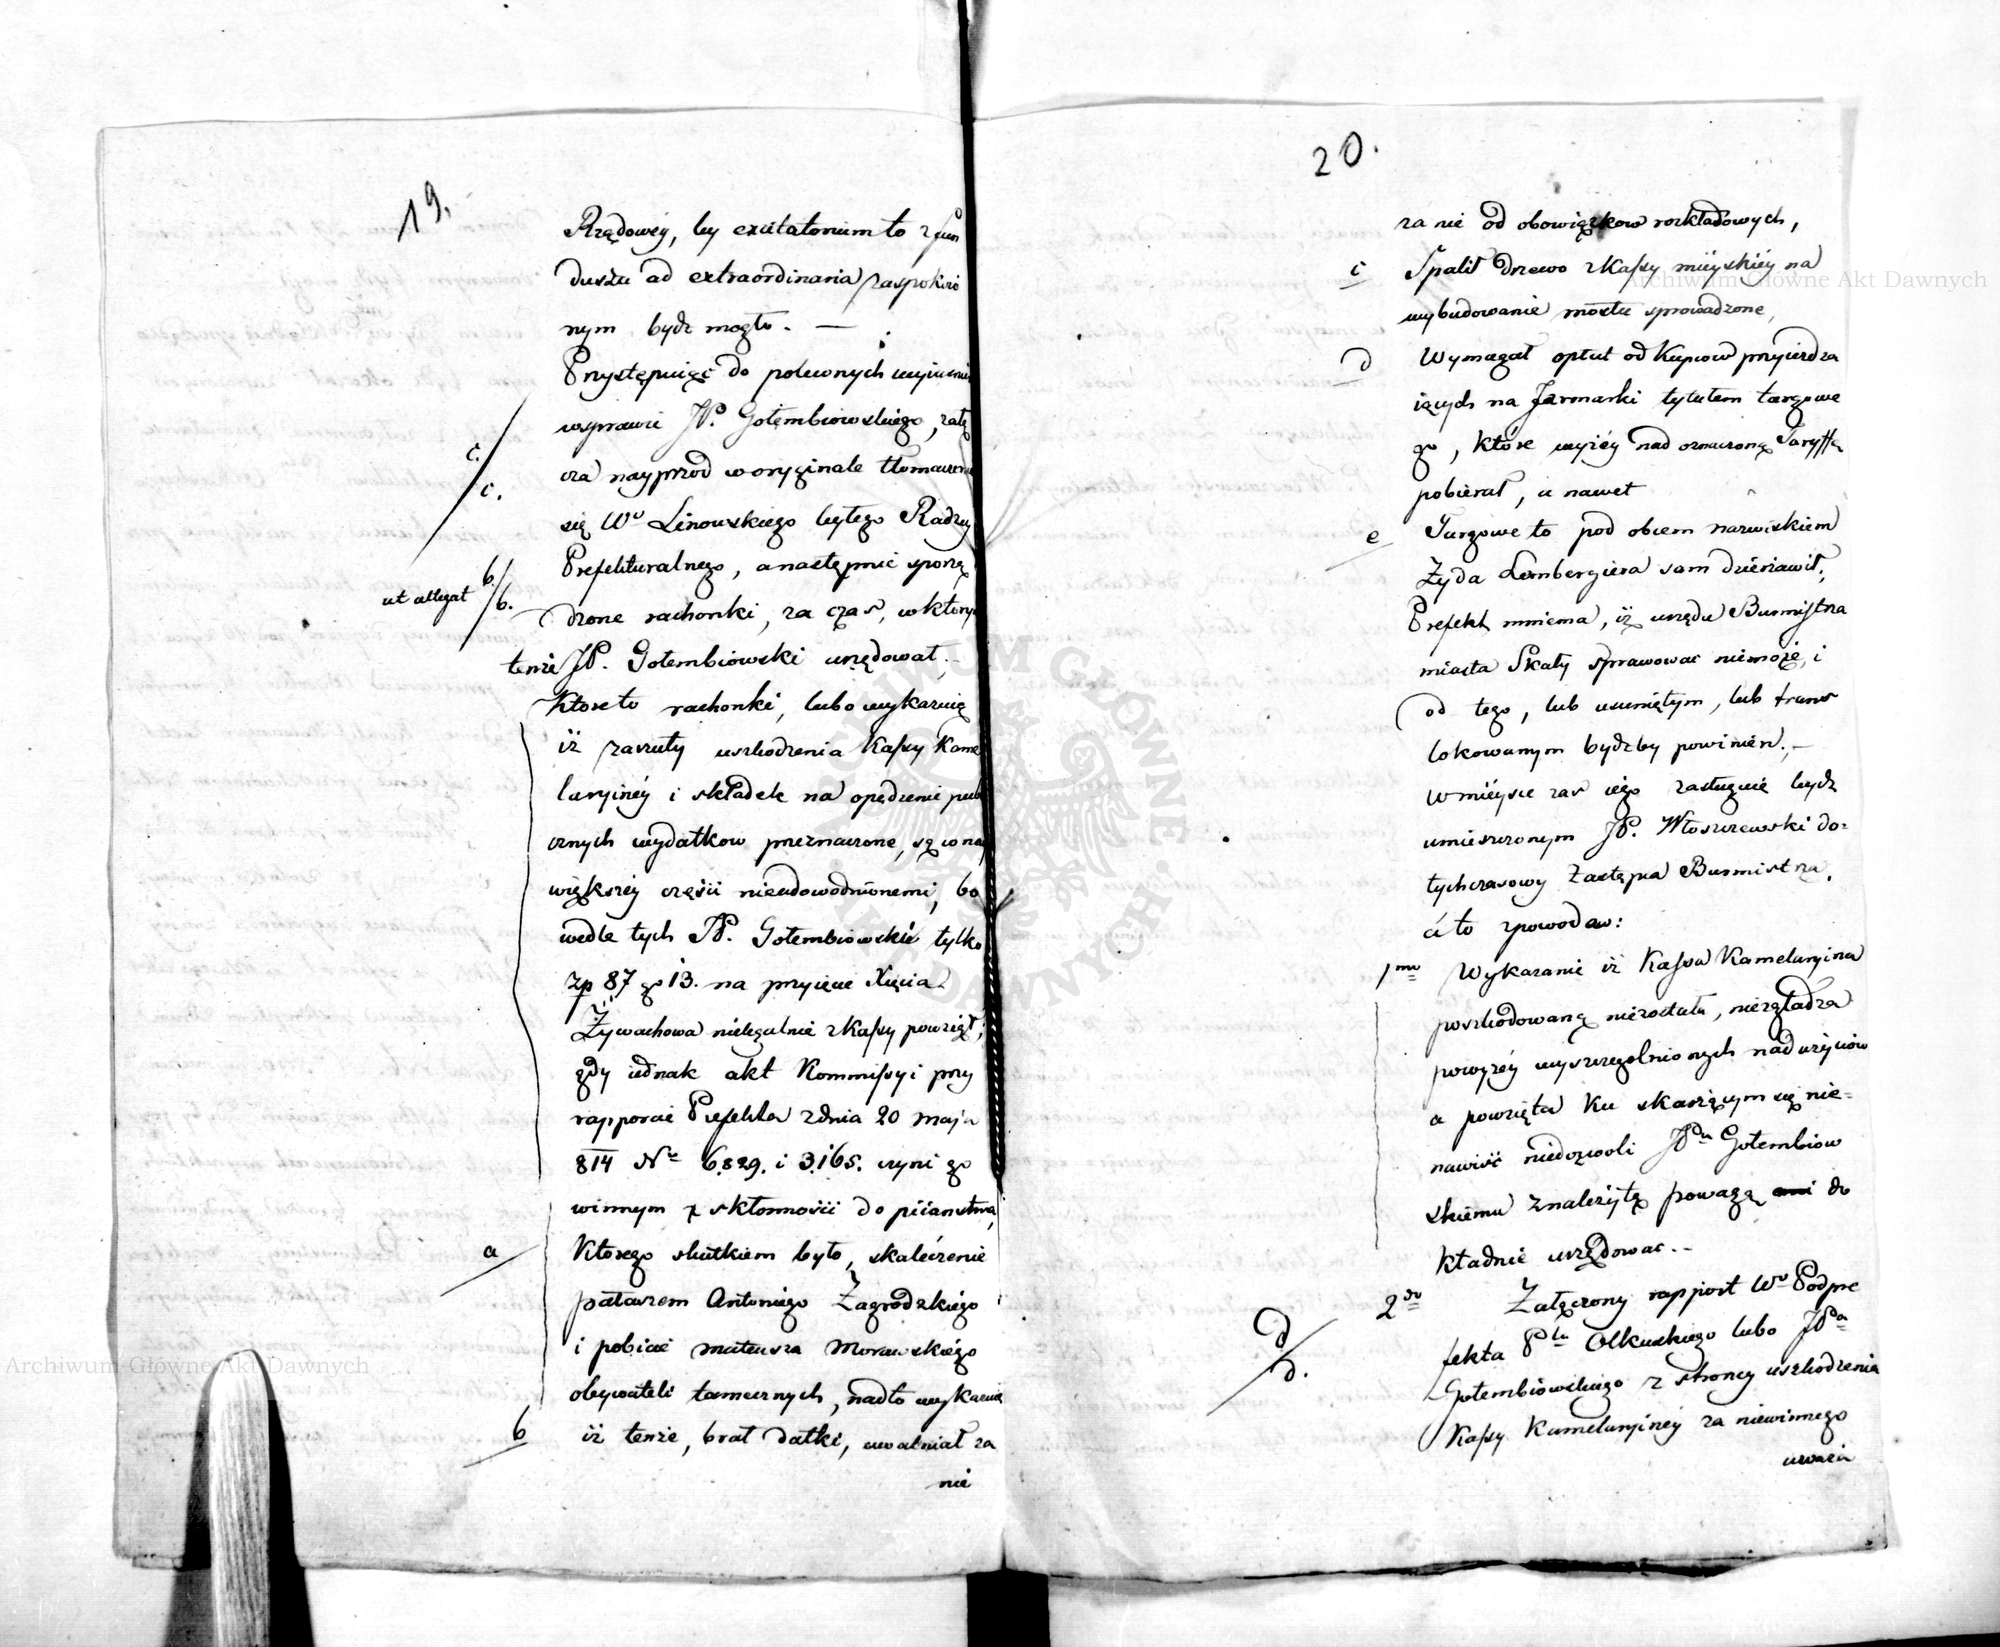 19.
Rządowéy, by excitatorium to z fun
duszu ad extraordinaria zaspokoio
nym bydź mogło. —
Przystępuiąc do poleconych wyiaśnień
c./c.
w sprawie JP. Gołembiowskiego, załą
cza nayprzód w oryginale tłomaczenie
się Wo Linowskiego byłego Radzcy
b./b.
ut allegat
Prefekturalnego, a następnie sporzą
dzone rachonki, za czas, w którym
tenże JP. Gołembiowski urzędował.
Które to rachonki, lubo wykazuią
iż zarzuty uszkodzenia Kassy Kame
laryinéy i składek na opędzenie publi
cznych wydatkow przeznaczone, są w nay
większéy części nieudowodnionemi, bo
wedle tych JP. Gołembiowski tylko
zp 87 gr 13. na przyięcie Xięcia
Żywachowa nielegalnie z Kassy powziął;
gdy iednak akt Kommissyi przy
rapporcie Prefekta z dnia 20 maja
814 No 6,829. i 3,165. czyni go
winnym z skłonności do piianstwa,
a
Którego skutkiem było, skaléczenie
pałaszem Antoniego Zagrodzkiego
i pobicie Mateusza Morawskiégo
obywateli tamecznych, nadto wykazuie
b
iż tenże, brał datki, uwalniał za
nie
20.
za nie od obowiązkow rozkładowych,
c
Spalił drzewo z Kassy mieyskiéy na
wybudowanie mostu sprowadzone,
d
Wymagał opłat od Kupcow przyieżdza
iących na Jarmarki tytułem targowe
go, które wyżéy nad oznaczoną Taryffę
pobierał, a nawet
e
Targowe to pod obcem nazwiskiem
Żyda Lembergiera sam dzierżawił;
Prefekt mniema, iż urzędu Burmistrza
miasta Skały sprawować niemoże, i
od tego, lub usuniętym, lub trans
lokowanym bydźby powinien. —
W mieysce zas iego zasługuie bydź
umieszczonym JP. Włoszczewski do=
tychczasowy Zastępca Burmistrza,
a to z powodow:
1mo
Wykazanie iż Kassa Kamelaryina
poszkodowaną niezostała, niezgładza
powyżéy wyszczegolnionych nadużyciow
a powzięta ku skarżącym się nie=
nawiść niedozwoli JPu Gołembiow
skiemu z należytą powagą do
kładnie urzędować. —
2do
Załączony rapport Wo Podpre
d/d.
fekta Ptu Olkuskiego lubo JPa
Gołembiowskiego z strony uszkodzenia
Kassy Kamelaryinéy za niewinnego
uważa
Archiwum Główne Akt Dawnych
Archiwum Główne Akt Dawnych
ARCHIWUM GŁÓWNE AKT DAWNYCH